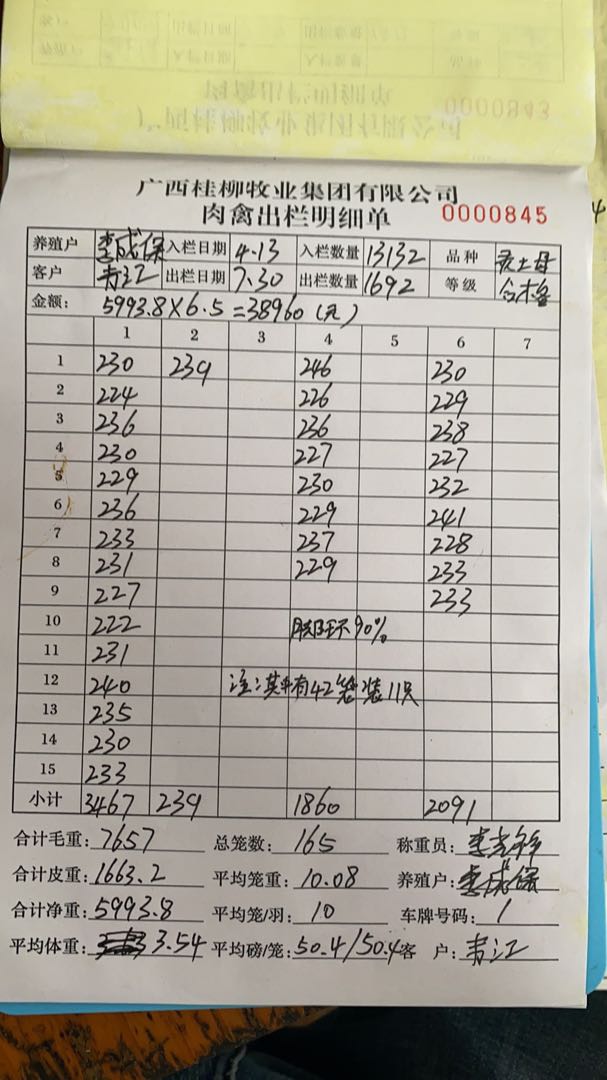 0000843
广西桂柳牧业集团有限公司
肉禽出栏明细单 0000845
养殖户 李成保 入栏日期 4.13 入栏数量 13132 品种 土母
客户 韦江 出栏日期 7.30 出栏数量 1692 等级 合格
金额: 5993.8×6.5=38960(元)
1 2 3 4 5 6 7
1 230 239 246 230
2 224 226 229
3 236 236 238
4 230 227 227
5 229 230 232
6 236 229 241
7 233 237 228
8 231 229 233
9 227 233
10 222 90%
11 231
12 240 注:其中有42笼装11只
13 235
14 230
15 233
小计 3467 239 1860 2091
合计毛重: 7657 总笼数: 165 称重员: 李
合计皮重: 1663.2 平均笼重: 10.08 养殖户: 李成保
合计净重: 5993.8 平均笼/羽: 10 车牌号码: 1
平均体重: 3.54 平均磅/笼: 50.4/50.4 客 户: 韦江